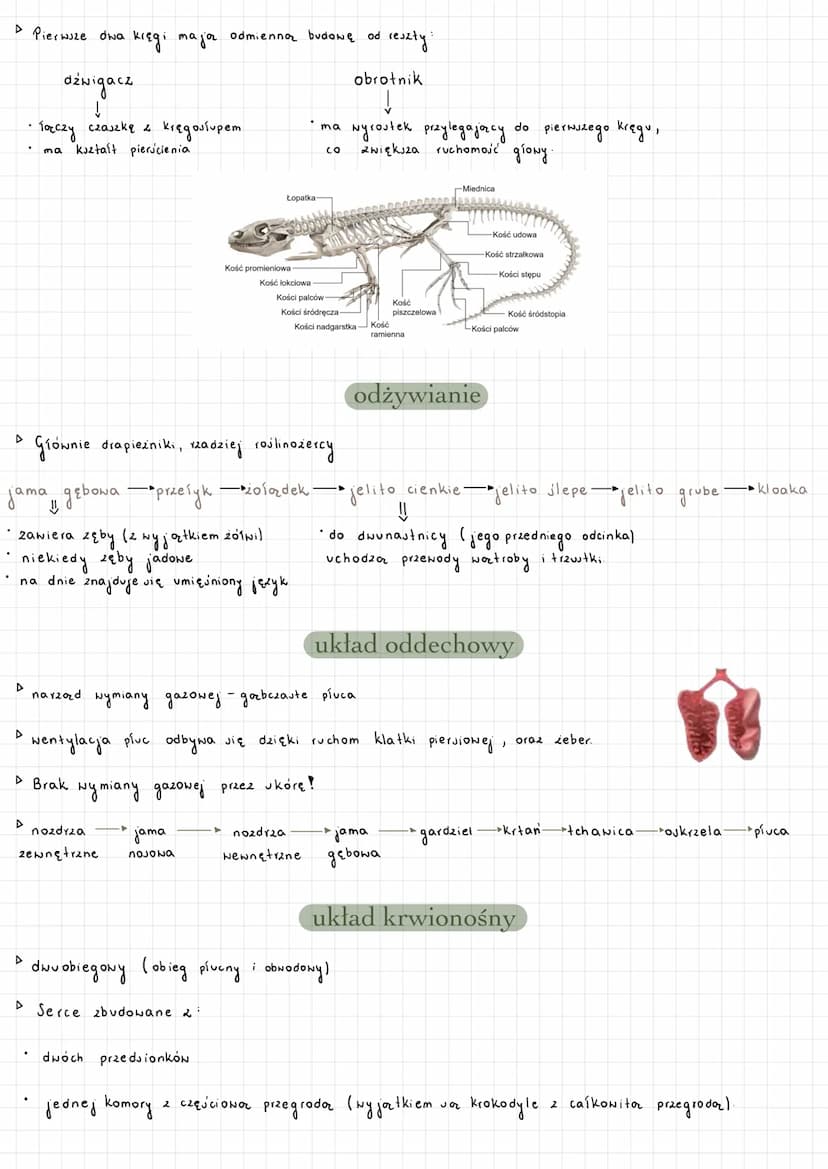 ▷ Pierwsze dwa kręgi mają odmienną budowę od reszty:
dźwigacz obrotnik
↓ ↓
• łączy czaszkę z kręgosłupem • ma wyrostek przylegający do pierwszego kręgu,
• ma kształt pierścienia co zwiększa ruchomość głowy.
Miednica
Łopatka
Kość udowa
Kość strzałkowa
Kość promieniowa
Kości stępu
Kość łokciowa
Kości palców
Kość piszczelowa
Kości śródręcza
Kość śródstopia
Kości nadgarstka
Kość ramienna
Kości palców
odżywianie
▷ Głównie drapieżniki, rzadziej roślinożercy
jama gębowa → przełyk → żołądek → jelito cienkie → jelito ślepe → jelito grube → kloaka
⇓ ⇓
• zawiera zęby (z wyjątkiem żółwi) • do dwunastnicy (jego przedniego odcinka)
• niekiedy zęby jadowe uchodzą przewody wątroby i trzustki.
• na dnie znajduje się umięśniony język
układ oddechowy
▷ narząd wymiany gazowej - gąbczaste płuca
▷ wentylacja płuc odbywa się dzięki ruchom klatki piersiowej, oraz żeber.
▷ Brak wymiany gazowej przez skórę!
▷ nozdrza → jama → nozdrza → jama → gardziel → krtań → tchawica → oskrzela → płuca
zewnętrzne nosowa wewnętrzne gębowa
układ krwionośny
▷ dwuobiegowy (obieg płucny i obwodowy)
▷ Serce zbudowane z:
• dwóch przedsionków
• jednej komory z częściową przegrodą (wyjątkiem są krokodyle z całkowitą przegrodą).